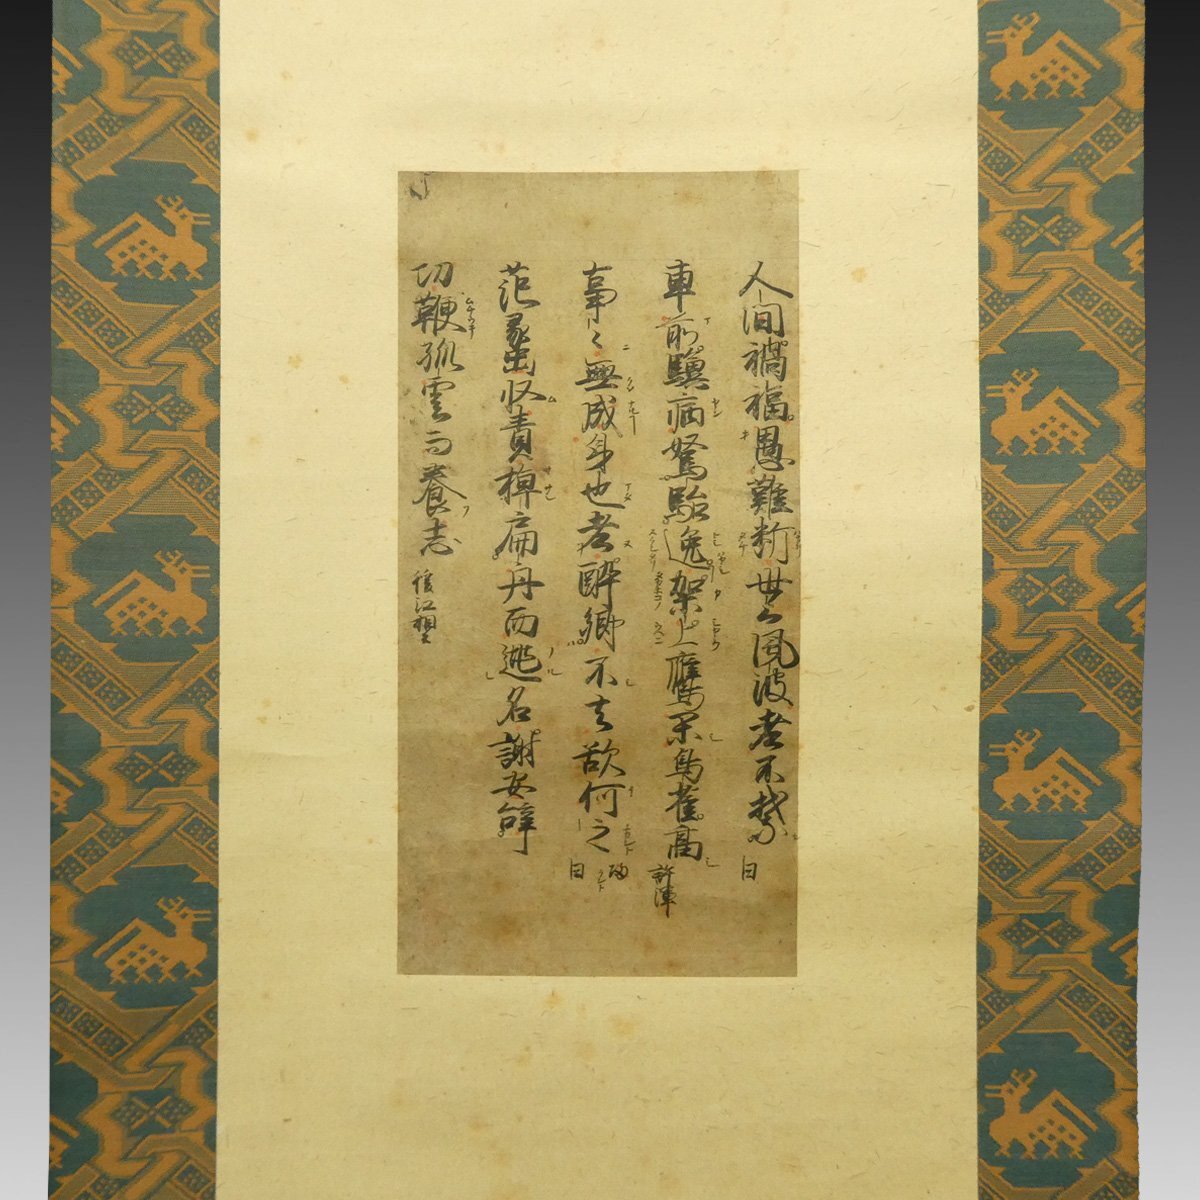 人間禍福愚難料世上風波老不禁 白
車前驥病駑駘逸架上鷹閑鳥雀高 許渾
事々無成身也老酔郷不去欲何之 白
范蠡収責棹扁舟而逃名謝安辞
功鞭孤雲而養志 後江相公